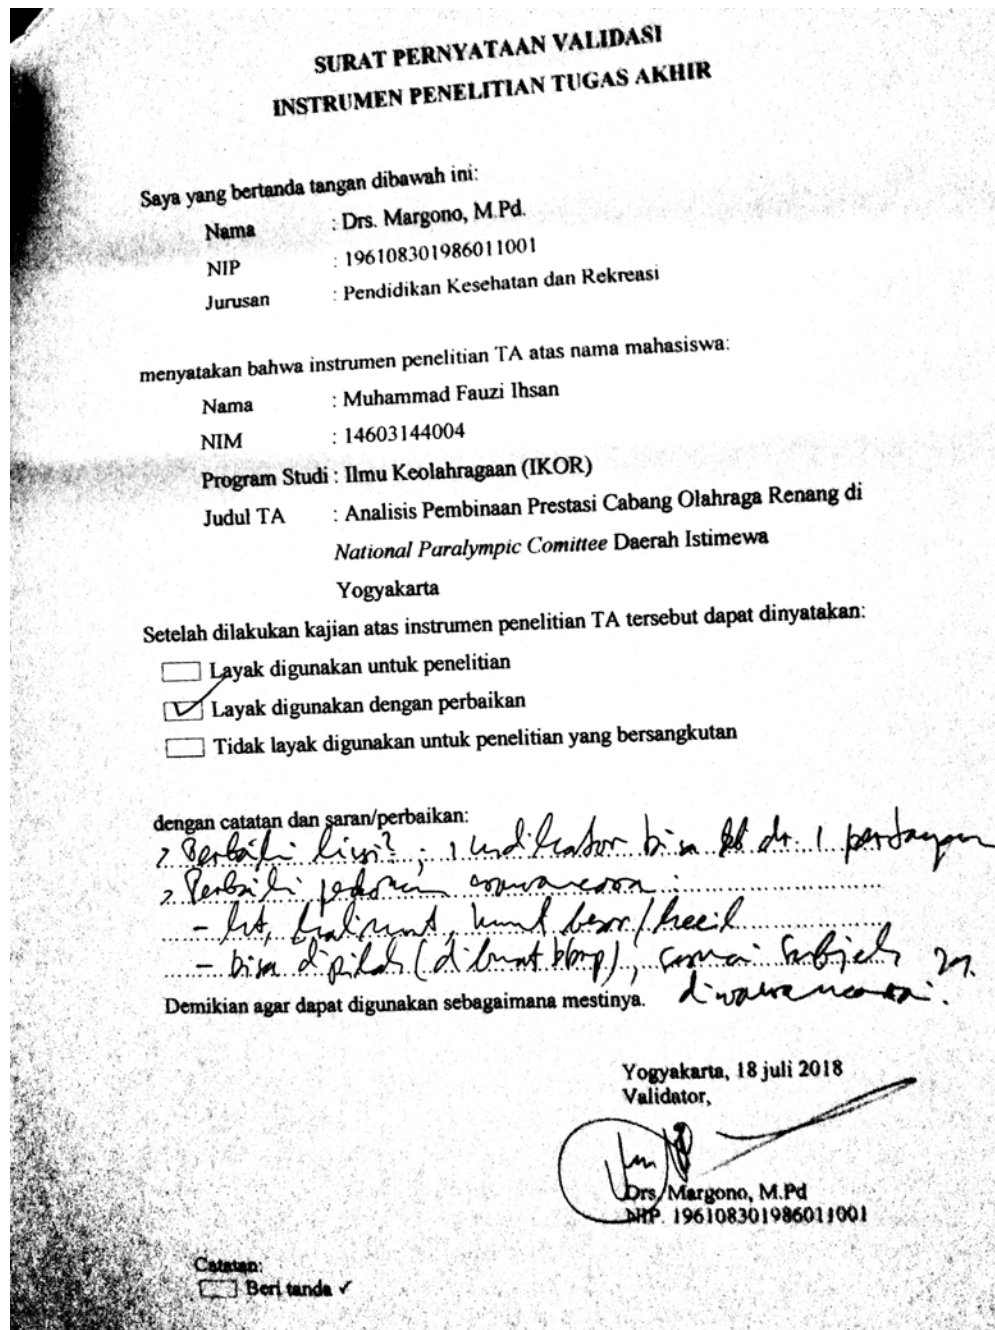 SURAT PERNYATAAN VALIDASI
INSTRUMEN PENELITIAN TUGAS AKHIR
Saya yang bertanda tangan dibawah ini:
Nama : Drs. Margono, M.Pd.
NIP : 196108301986011001
Jurusan : Pendidikan Kesehatan dan Rekreasi
menyatakan bahwa instrumen penelitian TA atas nama mahasiswa:
Nama : Muhammad Fauzi Ihsan
NIM : 14603144004
Program Studi : Ilmu Keolahragaan (IKOR)
Judul TA : Analisis Pembinaan Prestasi Cabang Olahraga Renang di
National Paralympic Comittee Daerah Istimewa
Yogyakarta
Setelah dilakukan kajian atas instrumen penelitian TA tersebut dapat dinyatakan:
Layak digunakan untuk penelitian
✓ Layak digunakan dengan perbaikan
Tidak layak digunakan untuk penelitian yang bersangkutan
dengan catatan dan saran/perbaikan:
Perbaiki kisi²; 1 indikator bisa dr. 1 pertanyaan
2. Perbaiki pedoman wawancara:
- kalimat, huruf besar/kecil
- bisa dipilah (dibuat), sesuai subjek yg.
diwawancarai.
Demikian agar dapat digunakan sebagaimana mestinya.
Yogyakarta, 18 juli 2018
Validator,
Drs. Margono, M.Pd
NIP. 196108301986011001
Catatan:
Beri tanda ✓